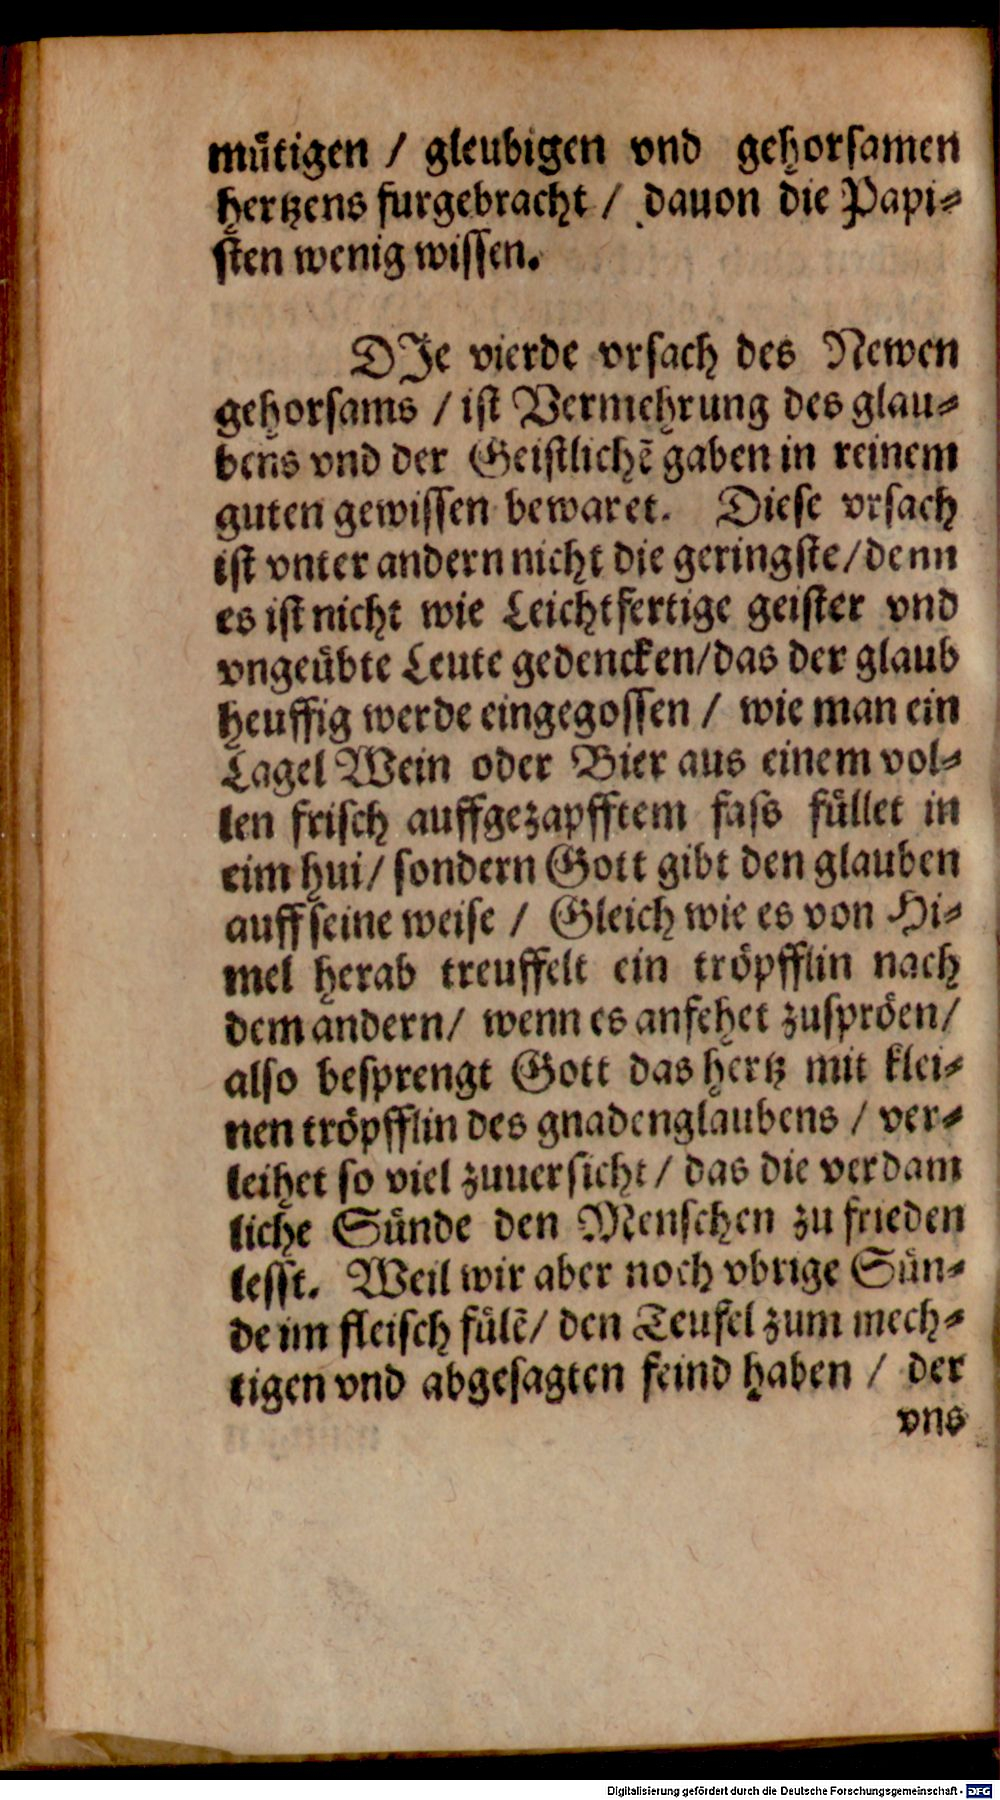 mütigen / gleubigen vnd gehorsamen
hertzens furgebracht / dauon die Papi⸗
sten wenig wissen.
DJe vierde vrsach des Newen
gehorsams / ist Vermehrung des glau⸗
bens vnd der Geistlichē gaben in reinem
guten gewissen bewaret. Diese vrsach
ist vnter andern nicht die geringste / denn
es ist nicht wie Leichtfertige geister vnd
vngeübte Leute gedencken / das der glaub
heuffig werde eingegossen / wie man ein
Lagel Wein oder Bier aus einem vol⸗
len frisch auffgezapfftem fass füllet in
eim hui / sondern Gott gibt den glauben
auff seine weise / Gleich wie es von Hi⸗
mel herab treuffelt ein tröpfflin nach
dem andern / wenn es anfehet zuspröen /
also besprengt Gott das hertz mit klei⸗
nen tröpfflin des gnadenglaubens / ver⸗
leihet so viel zuuersicht / das die verdam
liche Sünde den Menschen zu frieden
lesst. Weil wir aber noch vbrige Sün⸗
de im fleisch fülē / den Teufel zum mech⸗
tigen vnd abgesagten feind haben / der
vns
Digitalisierung gefördert durch die Deutsche Forschungsgemeinschaft - DFG